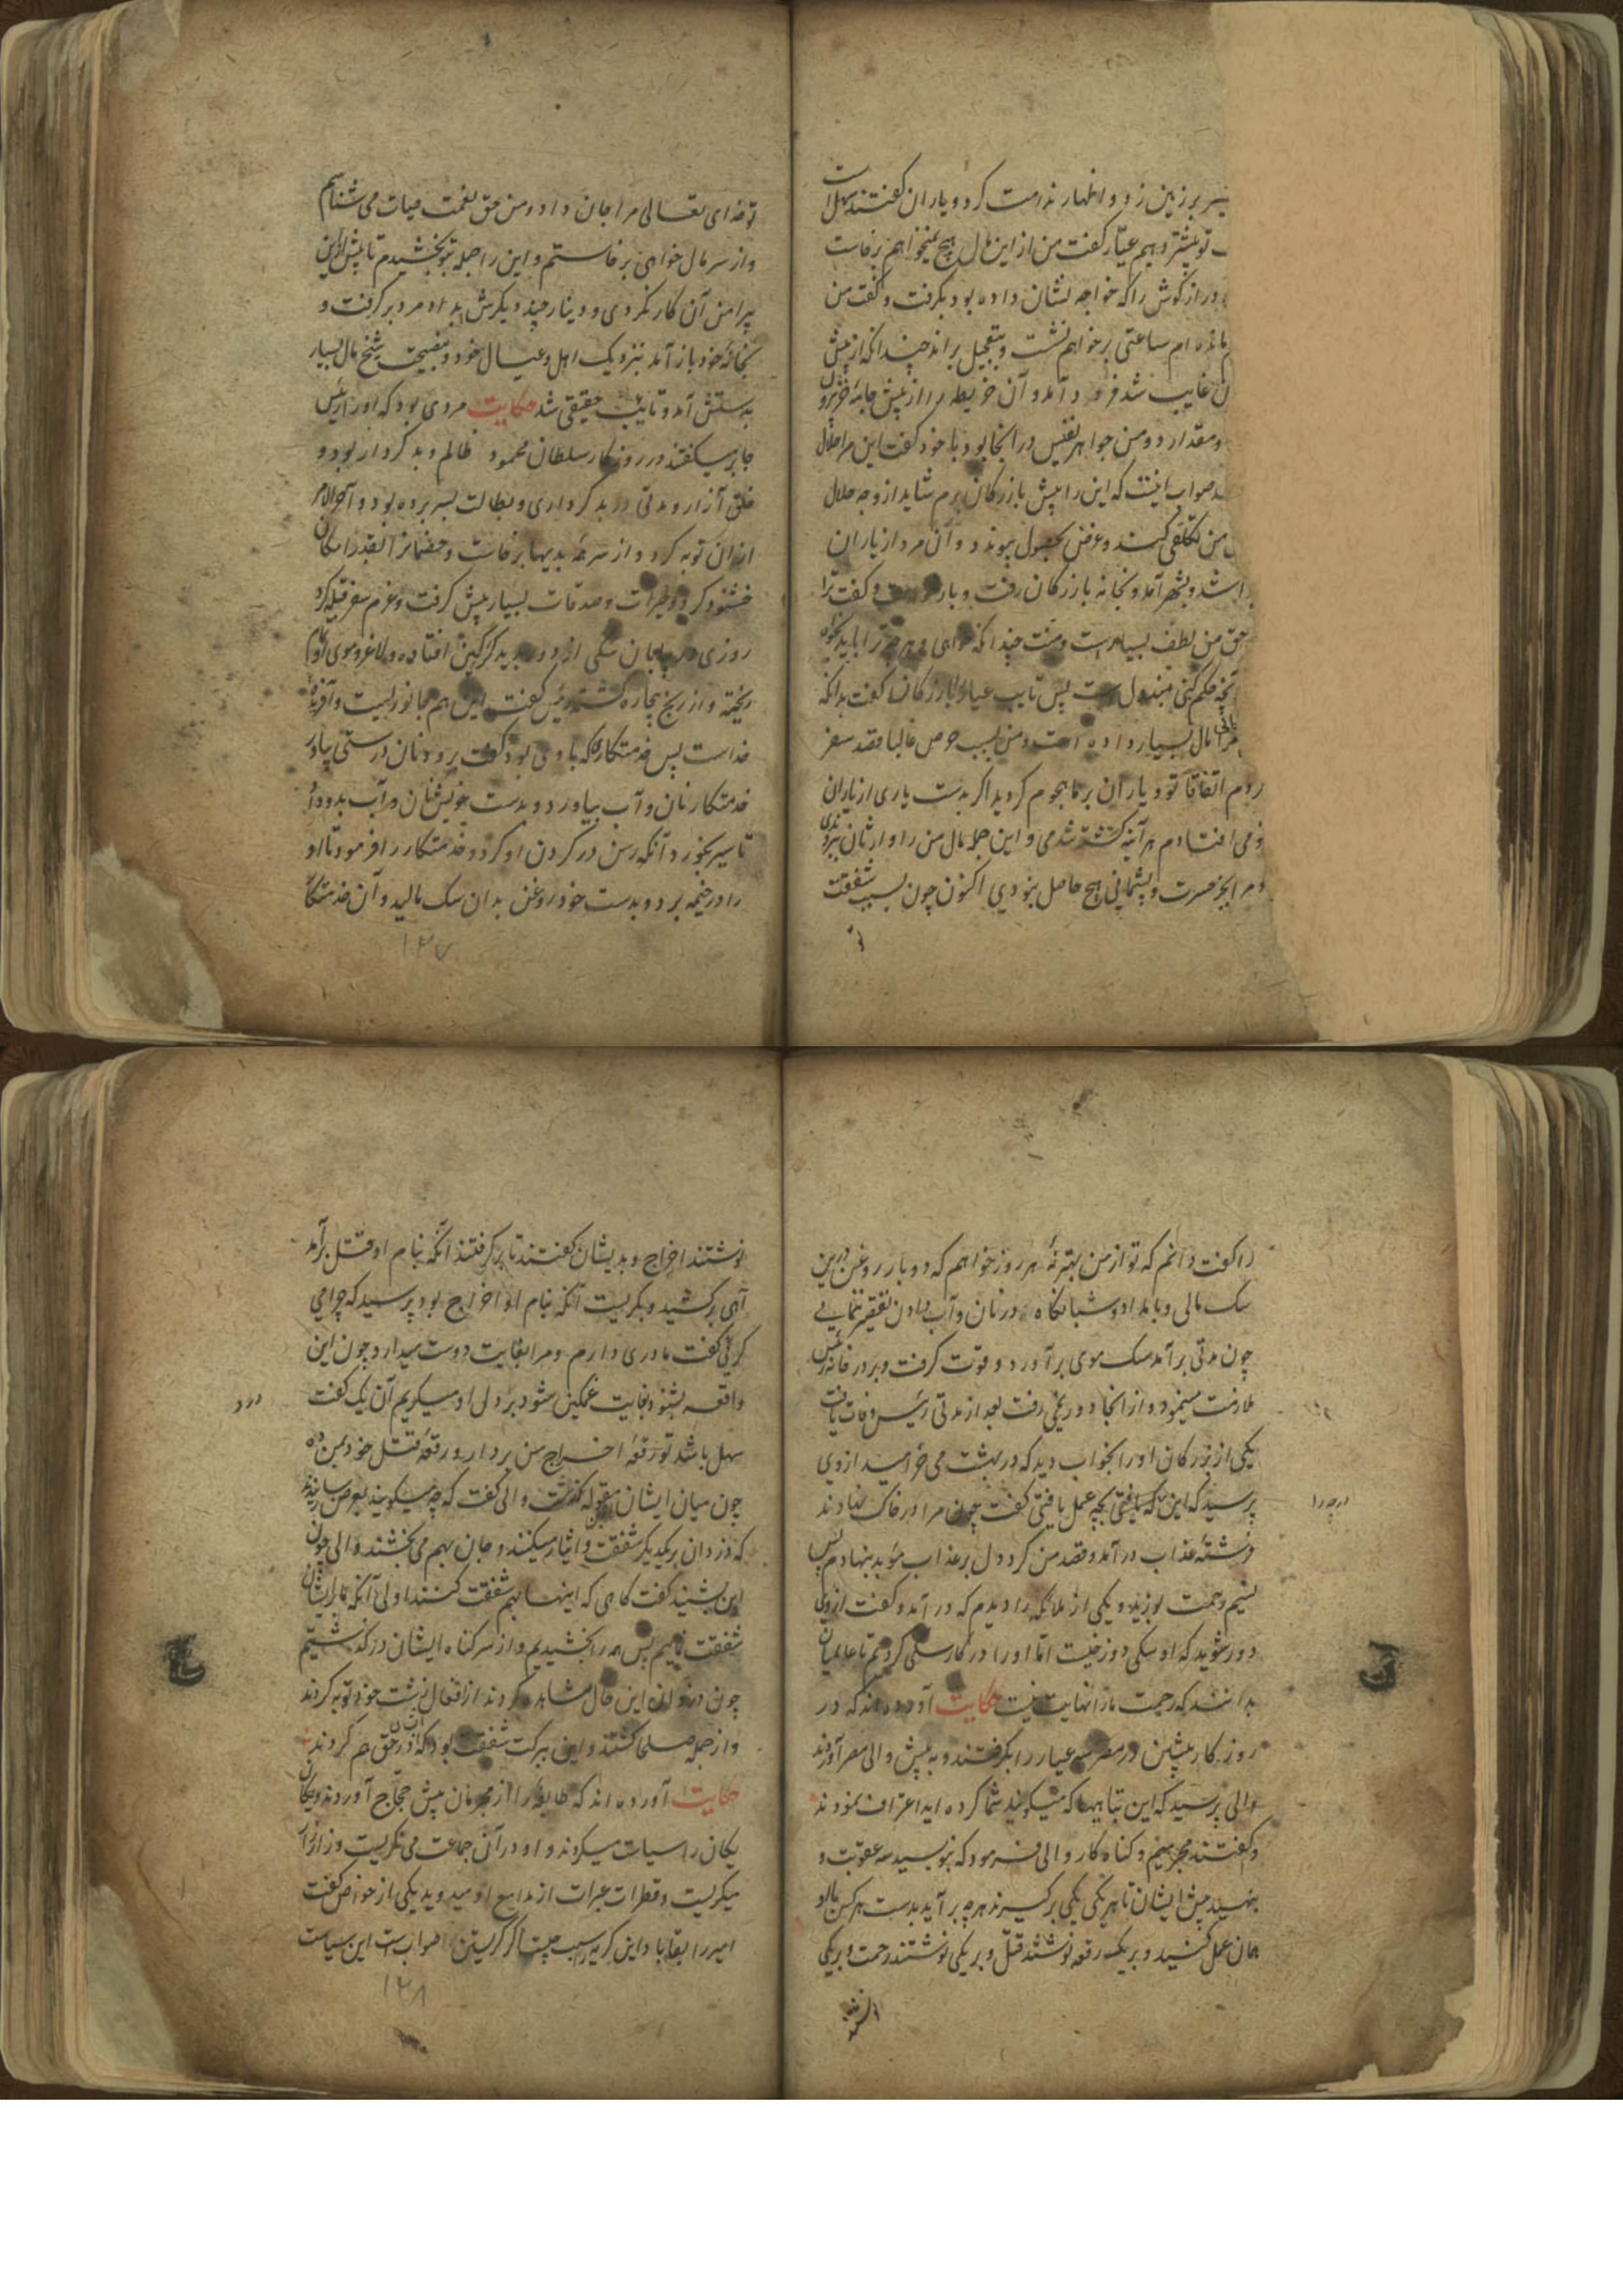 سر بر زمین زد و اظهار ندامت کرد و یاران گفتند سهل است
تو بیشتر دهیم عیار گفت من از این مال هیچ نمیخواهم برخاست
دراز گوش را که خواجه نشان داده بود بگرفت و گفت من
مانده ام ساعتی بر خواهم نشست و بتعجیل براند چندانکه از پیش
غایب شد فرود آمد و آن خریطه را از پیش جامه
و مقدار دو من جواهر نفیس در آنجا بود با خود گفت این مرا حلال
صواب اینست که این را پیش بازرگان برم شاید از وجه حلال
من تکلفی کند و غرض بحصول پیوندد و آن مرد از یاران
شد و بشهر آمد و بخانه بازرگان رفت و گفت ترا
حق من لطف بسیارست و منت چندانکه خواهی و هر چه ترا باید بخواه
حکم کنی مبذول است پس تایب عیار بازرگان گفت بدانکه
مرا مال بسیار داده است و من بسبب حرص غالبا قصد سفر
روم اتفاقا تو و یاران بر ما هجوم کردید اگر بدست یاری از یاران
می افتادم هر آینه کشته شدمی و این جمله مال من را وارثان
مرا بجز حسرت و پشیمانی هیچ حاصل نبودی اکنون چون بسبب شفقت
تو خدای تعالی مرا جان داد و من حق نعمت حیات می شناسم
و از سر مال خواهی برخاستم و این را جمله بتو بخشیدم تا پیش ازین
پیرامن آن کار نگردی و دینار چند دیگرش بداد مرد برگرفت و
بخانه خود باز آمد نزدیک اهل و عیال خود و بنصیحت شیخ مال بسیار
بدستش آمد و تائب حقیقی شد حکایت مردی بود که او را رئیس
جابر میگفتند در روزگار سلطان محمود ظالم و بد کردار بود و
خلق آزار و مدتی در بد کرداری و بطالت بسر برده بود و آخر الامر
از آن توبه کرد و از سر همه بدیها برخاست و خصمانرا القدر امکان
خشنود کرد و خیرات و صدقات بسیار پیش گرفت و عزم سفر قبله کرد
روزی در بیابان سگی از دور بدید گرگین افتاده و لاغر و موی او تمام
ریخته و از رنج بیچاره گشته رئیس گفت این هم جانوریست و آفریده
خداست پس خدمتکاری که با وی بود گفت برو و نان درستی بیاور
خدمتکار نان و آب بیاورد و بدست خویش نان در آب بدو داد
تا سیر بخورد آنکه رسن در گردن او کرد و خدمتکار را فرمود تا او
را در خیمه برد و بدست خود روغن بدان سگ مالید و آن خدمتکار
۱۲۷
را گفت دانم که تو از من بهتر نه هر روز خواهم که دو بار روغن درین
سگ مالی و بامداد و شبانگاه در نان و آب دادن تقصیر ننمایی
چون مدتی برآمد سگ موی برآورد و قوت گرفت و بر در خانه رئیس
ملازمت مینمود و از آنجا دور نمی رفت بعد از مدتی رئیس وفات یافت
یکی از بزرگان او را بخواب دید که در بهشت می خرامید از وی
پرسید که این که یافتی بچه عمل یافتی گفت چون مرا در خاک نهادند
فرشته عذاب درآمد و قصد من کرد و دل بر عذاب مؤبد بنهادم پس
نسیم رحمت بوزید و یکی از ملائکه را دیدم که درآمد و گفت از وی
دور شوید که او سگی دوزخیست اما او را در کار سگی کردیم تا عالمیان
بدانند که رحمت ما را نهایت نیست حکایت آورده اند که در
روزگار پیشین در مصر سه عیار را بگرفتند و به پیش والی مصر آوردند
والی پرسید که این تباهیها که میگویند شما کرده اید اعتراف نمودند
و گفتند مجرمیم و گناه کار والی فرمود که بنویسید سه عقوبت و
بنهید پیش ایشان تا هر یکی یکی برگیرند هر چه برآید بدست هر کس با او
همان عمل کنید و بر یک رقعه نوشتند قتل و بر یکی نوشتند رحمت و بر یکی
نوشتند اخراج و بدیشان گفتند تا برگرفتند آنکه بنام او قتل برآمد
آهی برکشید و بگریست آنکه بنام او اخراج بود پرسید که چرا می
گریی گفت مادری دارم و مرا بغایت دوست میدارد چون این
واقعه بشنود بغایت غمگین شود بر دل او میگریم آن یک گفت
سهل باشد تو رقعه اخراج من بردار و رقعه قتل خود بمن ده
چون میان ایشان مقوله گذشت والی گفت که چه میگویند بعرض رسانیدند
که دزدان بر یکدیگر شفقت و ایثار میکنند و جان بهم می بخشند والی چون
این بشنید گفت گاهی که اینها بهم شفقت کنند اولی آنکه ما بر ایشان
شفقت نماییم پس همه را بخشیدیم و از سر گناه ایشان درگذشتیم
چون دزدان این حال مشاهده کردند از افعال زشت خود توبه کردند
و از جمله صلحا گشتند و این ببرکت شفقت بود که آن در حق هم کردند
حکایت آورده اند که طایفه را از مجرمان پیش حجاج آوردند و یکان
یکان را سیاست میکردند و او در آن جماعت می نگریست و زار زار
میگریست و قطرات عبرات از مدامع او میدوید یکی از خواص گفت
امیر را بقا باد این گریه را سبب چیست اگر گریستن صوابست این سیاست
۱۲۸